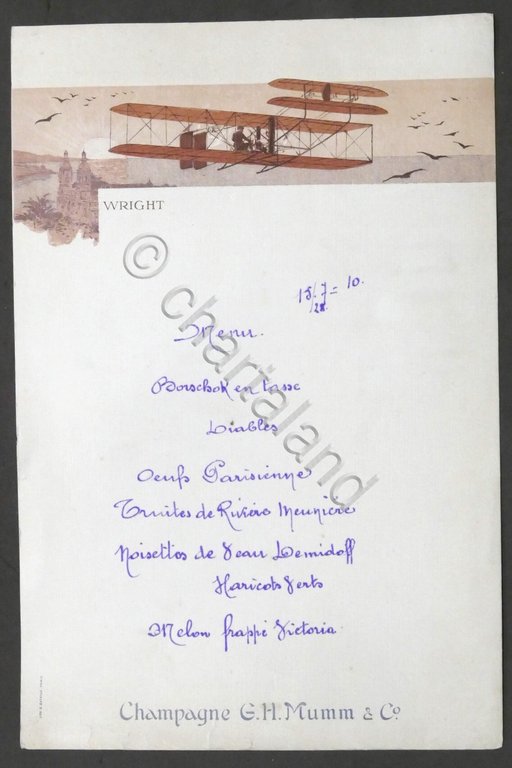 WRIGHT
15/7 = 10.
/28.
Menu.
Borschok en tasse
Diables
Oeufs Parisienne
Truites de Rivière Meunière
Noisettes de Veau Demidoff
Haricots Verts
Melon frappé Victoria
Champagne G.H. Mumm & Co
© chartaland